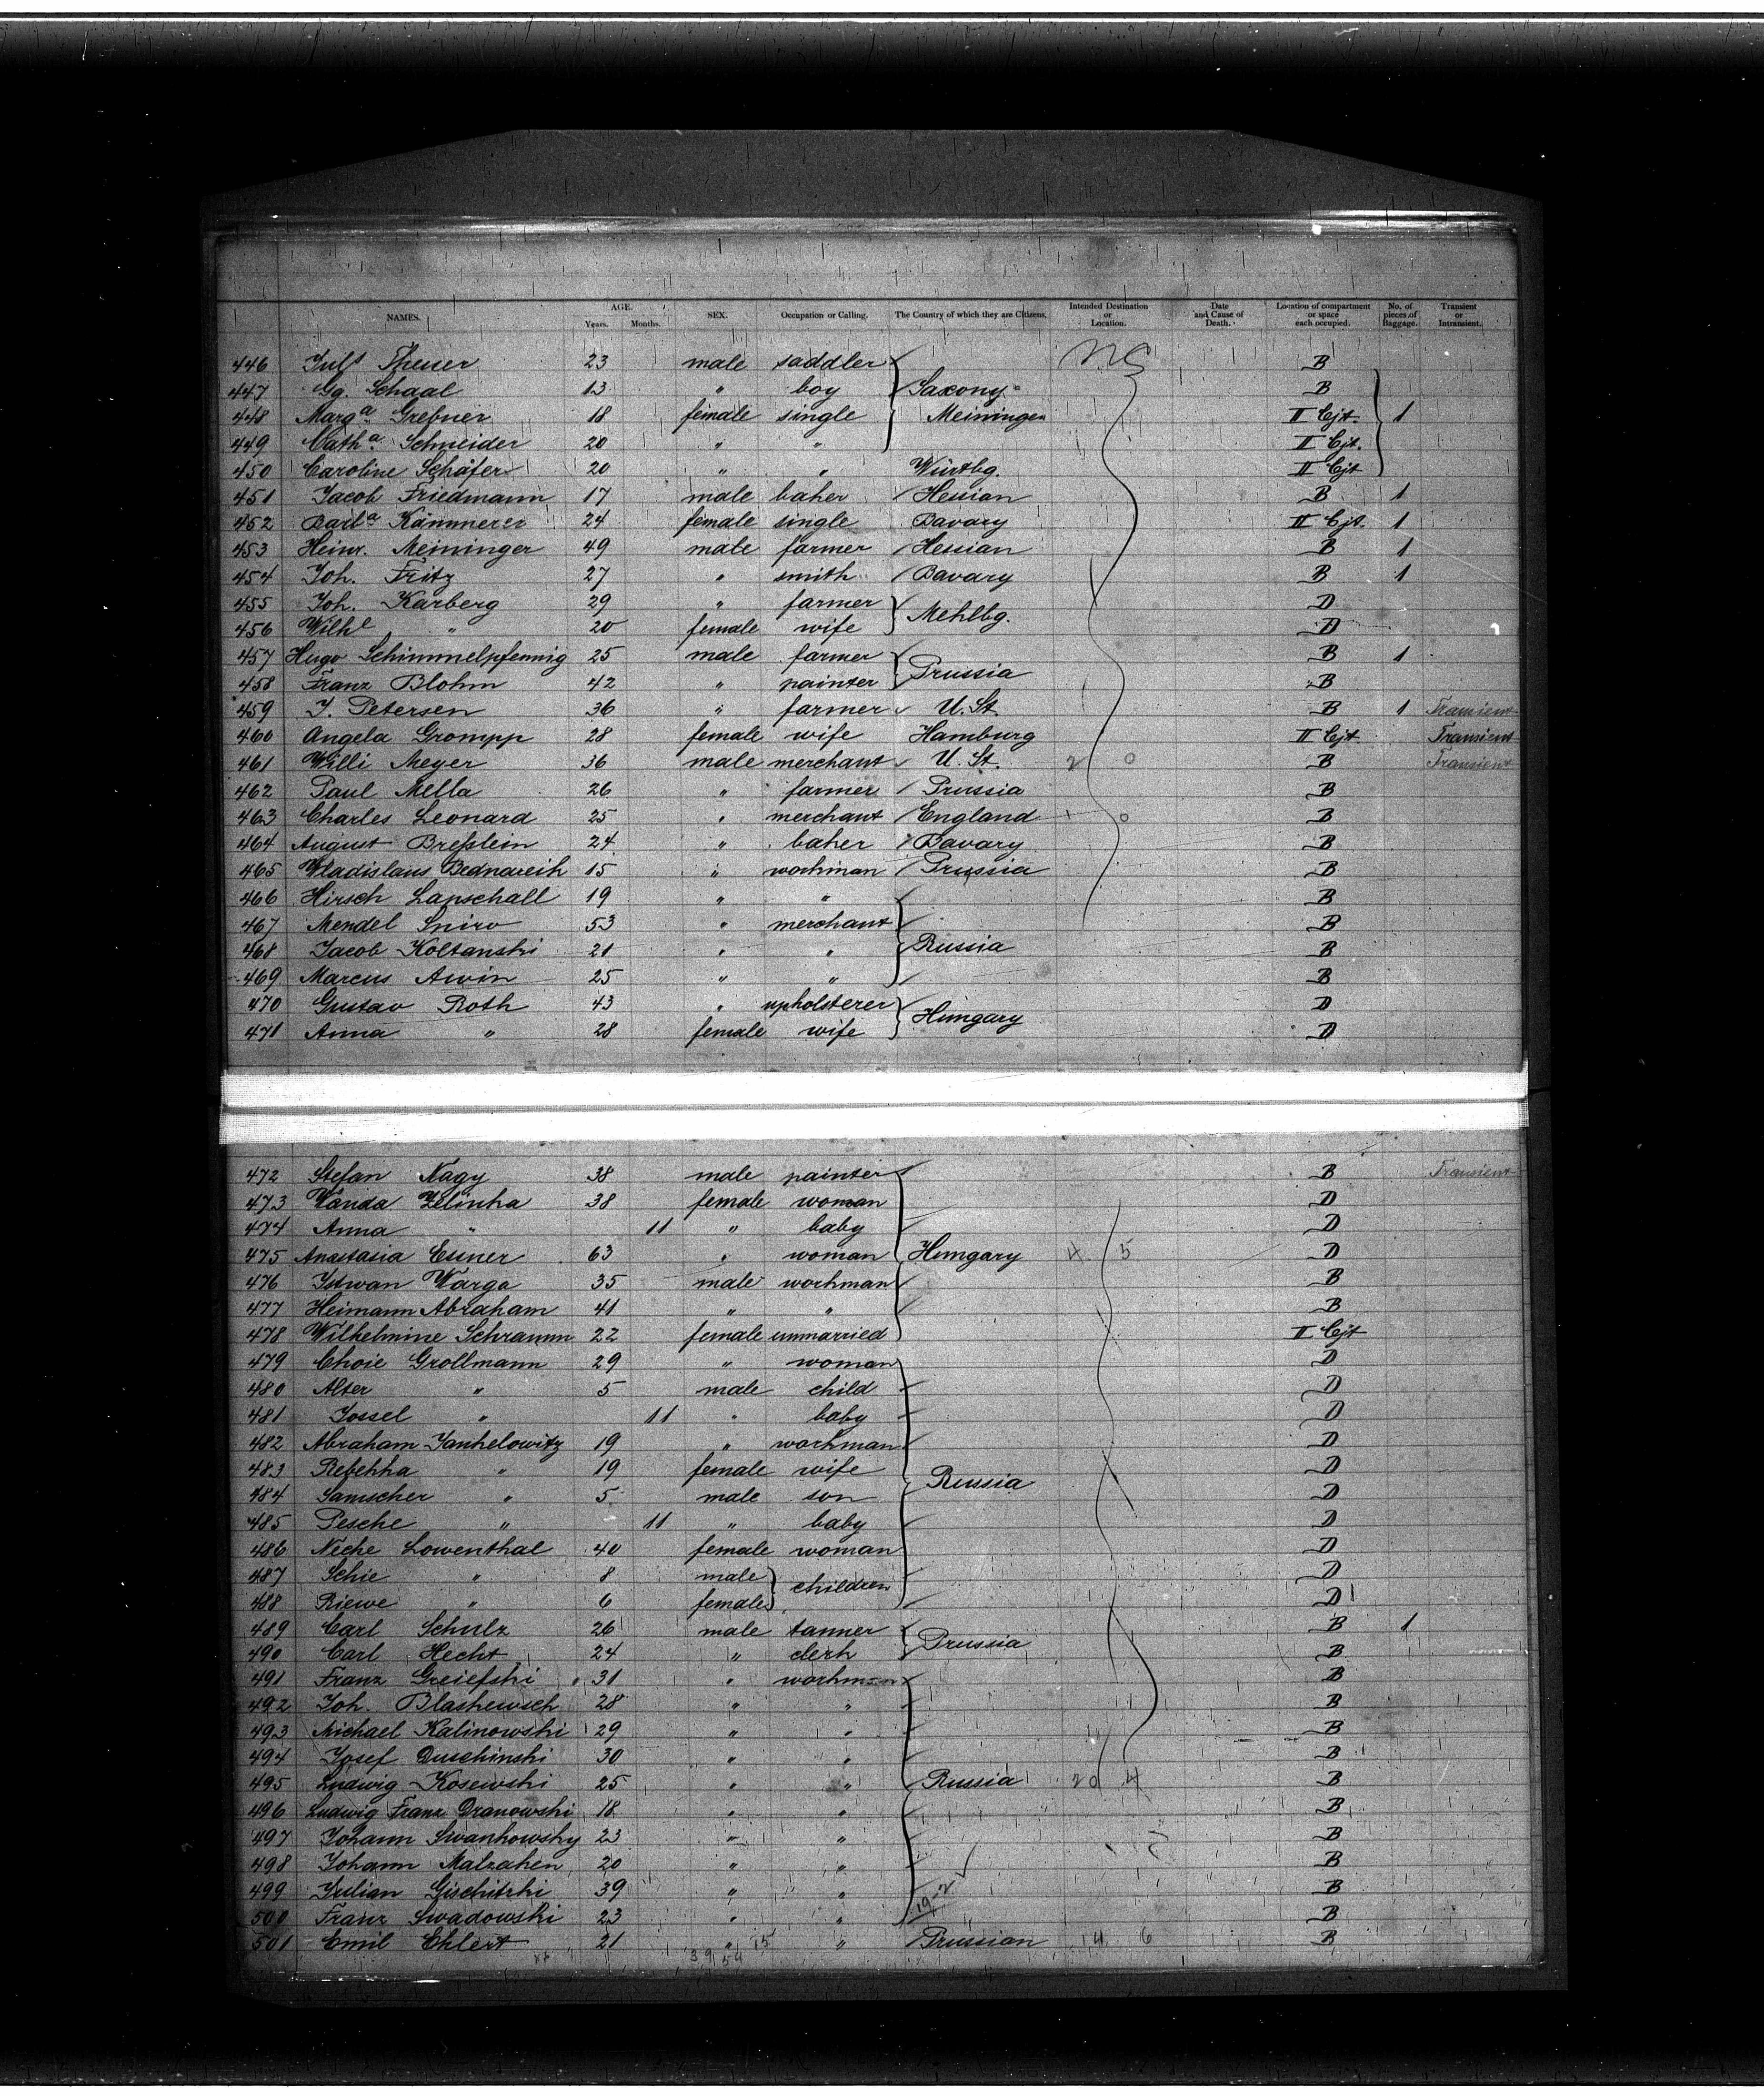 NAMES. AGE. Years. Months. SEX. Occupation or Calling. The Country of which they are Citizens. Intended Destination or Location. Date and Cause of Death. Location of compartment or space each occupied. No. of pieces of Baggage. Transient or Intransient.
446 Juls Theuer 23 male saddler B
447 Gg. Schaal 13 " boy Saxony- B
448 Marga Grebner 18 female single Meiningen II Cjt. 1
449 Catha Schneider 20 " " II Cjt.
450 Caroline Schäfer 20 " " Würtbg. II Cjt
451 Jacob Friedmann 17 male baker Hessian B 1
452 Barba Kämmerer 24 female single Bavary II Cjt. 1
453 Heinr. Meininger 49 male farmer Hessian B 1
454 Joh. Fritz 27 " smith Bavary B 1
455 Joh. Karberg 29 " farmer Meklbg. D
456 Wilhe " 20 female wife D
457 Hugo Schimmelpfennig 25 male farmer Prussia B 1
458 Franz Blohm 42 " painter B
459 J. Petersen 36 " farmer U. St. B 1 Transient
460 Angela Grompp 28 female wife Hamburg II Cjt Transient
461 Willi Meyer 36 male merchant U. St. 2 0 B Transient
462 Paul Mella 26 " farmer Prussia B
463 Charles Leonard 25 " merchant England 1 0 B
464 August Breßlein 24 " baker Bavary B
465 Wladislaus Bednareik 15 " workman Prussia B
466 Hirsch Lapschall 19 " " B
467 Mendel Sniro 53 " merchant B
468 Jacob Koltanski 21 " " Russia B
469 Marcus Arvin 25 " " B
470 Gustav Roth 43 " upholsterer Hungary D
471 Anna " 28 female wife D
472 Stefan Nagy 38 male painter B Transient
473 Wanda Zelinka 38 female woman D
474 Anna " 11 " baby D
475 Anastasia Esner 63 " woman Hungary 4 5 D
476 Istwan Warga 35 male workman B
477 Heimann Abraham 41 " " B
478 Wilhelmine Schramm 22 female unmarried II Cjt
479 Choie Grollmann 29 " woman D
480 Alter " 5 male child D
481 Jossel " 11 " baby D
482 Abraham Jankelowitz 19 " workman D
483 Rebekka " 19 female wife Russia D
484 Samscher " 5 male son D
485 Pesche " 11 " baby D
486 Neche Lowenthal 40 female woman D
487 Schie " 8 male children D
488 Riewe " 6 female D
489 Carl Schulz 26 male tanner Prussia B 1
490 Carl Hecht 24 " clerk B
491 Franz Greiefski 31 " workman B
492 Joh Blaskewsch 28 " " B
493 Michael Kalinowski 29 " " B
494 Josef Duschinski 30 " " B
495 Ludwig Kosewski 25 " " Russia 20 4 B
496 Ludwig Franz Dranowski 18 " " B
497 Johann Swankowsky 23 " " B
498 Johann Malzahen 20 " " B
499 Julian Gischitzki 39 " " B
500 Franz Swadowski 23 " " B
501 Emil Ehlert 21 " " Prussian 14 6 B